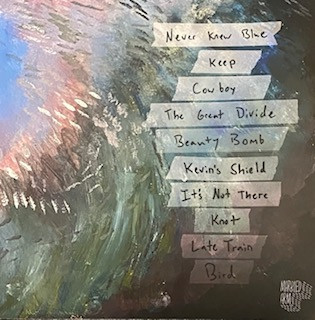 Never Knew Blue
Keep
Cowboy
The Great Divide
Beauty Bomb
Kevin's Shield
It's Not There
Knot
Late Train
Bird
MARRIED
ARMY